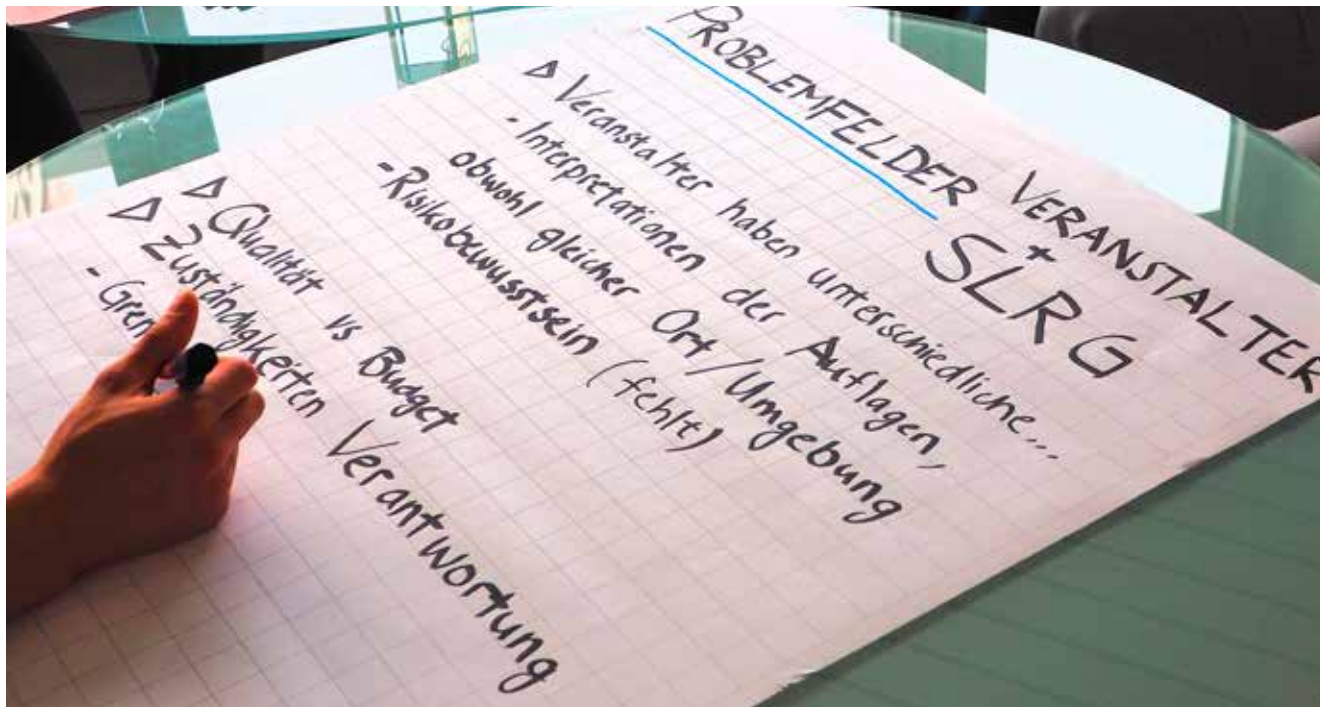 PROBLEMFELDER VERANSTALTER
+
SLRG
▷ Veranstalter haben unterschiedliche...
- Interpretationen der Auflagen,
obwohl gleicher Ort/Umgebung
- Risikobewusstsein (fehlt)
▷ Qualität vs Budget
▷ Zuständigkeiten Verantwortung
- Gren